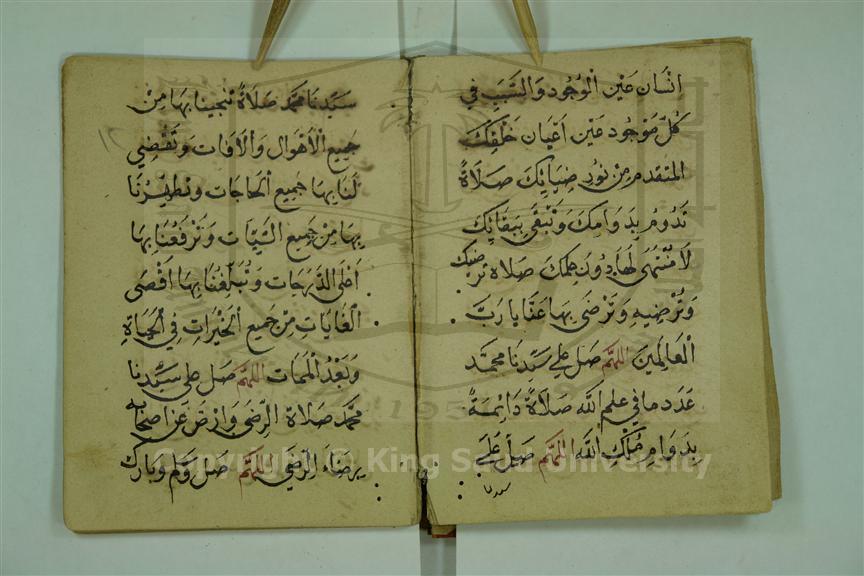 انْسَان عَيْن الْوُجُود وَالسَّبَبِ فِي
كُلِّ مَوْجُود عَيْن اَعْيَان خَلْقِكَ
المتقدم مِنْ نُورِ ضِيَائِكَ صَلَاةً
تَدُومُ بِدَوَامِكَ وَتَبْقَى بِبَقَائِكَ
لَا مُنْتَهَى لَهَا دُونَ عِلْمِكَ صَلَاة ترضيك
وَتُرْضِيهِ وَتَرْضَى بِهَا عَنَّا يَا رَبَّ
الْعَالَمِينَ اللهُم صَل عَلى سَيِّدِنَا محمَّد
عَدَد مَا فِي علم الله صَلَاةً دَائِمَةً
بِدَوَامِ مُلْكِ اللهِ اللهُم صَلِّ عَلَى
سيدنا
سَيِّدِنَا مُحَمَّد صَلَاةً تُنْجِينَا بِهَا مِنْ
جَمِيعِ الْاَهْوَال وَالْاٰفَات وَتَقْضِي
لَنَا بِهَا جَمِيع الْحَاجَات وَتُطَهِّرُنَا
بِهَا مِنْ جَمِيع السَّيِّاٰت وَتَرْفَعُنَا بِهَا
اَعْلَى الدَّرَجَات وَتُبَلِّغُنَا بِهَا اَقْصَى
الْغَايَاتِ مِنْ جَمِيع الْخَيْرَاتِ فِي الْحَيَاةِ
وَبَعْدَ الْمَمَات اللهُم صَل عَلى سَيِّدِنَا
مُحَمَّد صَلَاة الرِّضَى وَارْضَ عَنْ اَصْحَابِه
بِرِضَاء الرِّضَى اللهُم صَل وَسَلم وَبَارِك
١٢
Copyright © King Saud University
1957